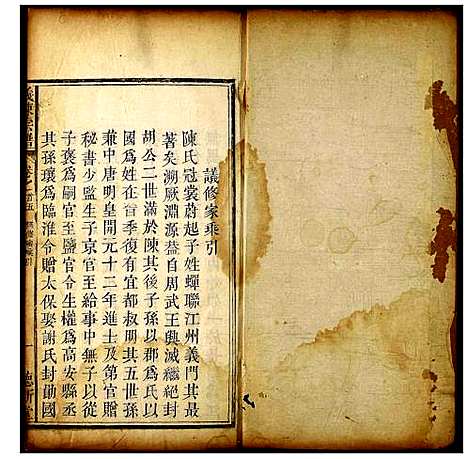 議修家乘引
陳氏冠裳蔚起子姓蟬聯江州義門其最
著矣溯厥淵源益自周武王興滅繼絕封
胡公二世滿於陳其後子孫以郡為氏以
國為姓在晉季復有宜都叔明其五世孫
兼中唐明皇開元十二年進士及第官贈
秘書少監生子京官至給事中無子以從
子褒為嗣官至鹽官令生權為高安縣丞
其孫瓌為臨淮令贈太保娶謝氏封勛國